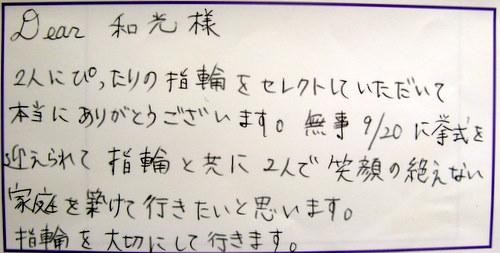 Dear 和光様
2人にぴったりの指輪をセレクトしていただいて
本当にありがとうございます。無事9/20に挙式を
迎えられて指輪と共に2人で笑顔の絶えない
家庭を築けて行きたいと思います。
指輪を大切にして行きます。